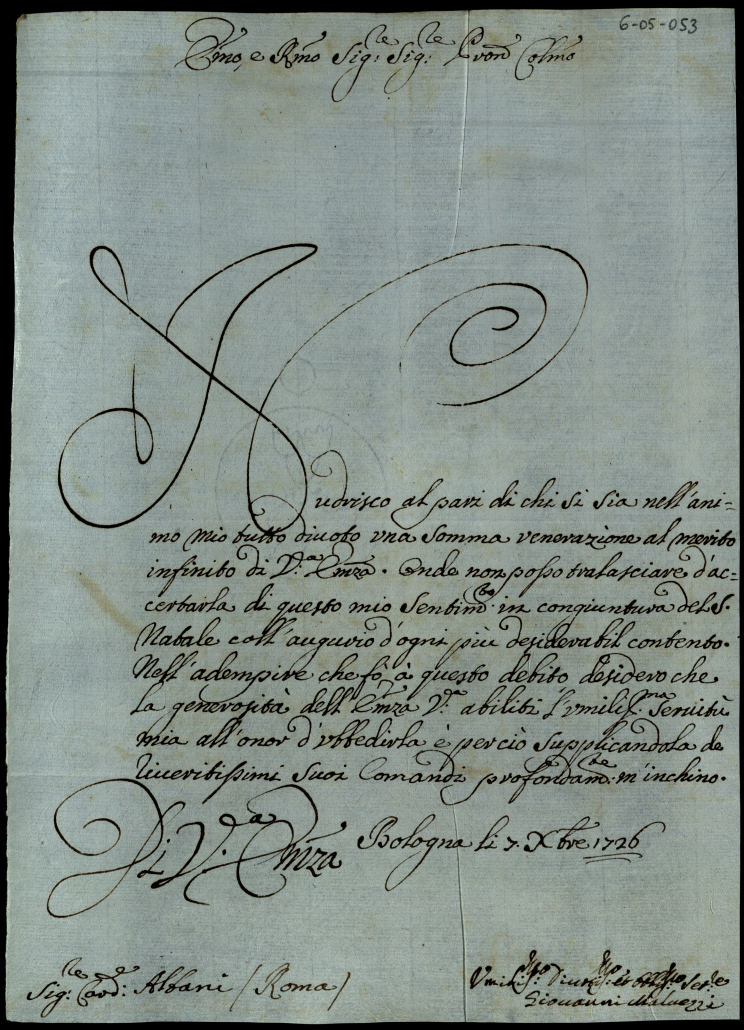 6-05-053
Emo, e Rmo Sig:re Sig:re Pron Colmo
Nudrisco al pari di chi si sia nell'ani=
mo mio tutto diuoto vna somma venerazione al merito
infinito di V.a Emza. Onde non posso tralasciare d'ac=
certarla di questo mio Sentim:to in congiuntura del S.
Natale coll'augurio d'ogni più desiderabil contento.
Nell'adempire che fò à questo debito desidero che
la generosità dell'Emza V.a abiliti l'vmiliss.ma Seruitù
mia all'onor d'vbbedirla è perciò supplicandola de
riueritissimi suoi Comandi profondam:te m'inchino.
Di V.a Emza Bologna li 7. Xbre 1726
Sig:re Card:e Albani (Roma)
Vmilis:mo Diuotis:mo et Obblig:mo Ser:e
Giouanni Maluezzi